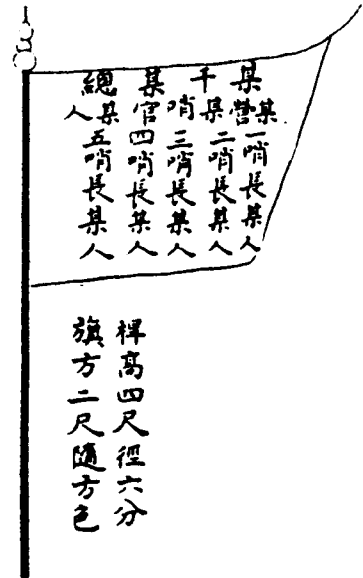 某某營一哨長某人
千某二哨長某人
哨三哨長某人
某官四哨長某人
總某人五哨長某人
桿高四尺徑六分
旗方二尺隨方色